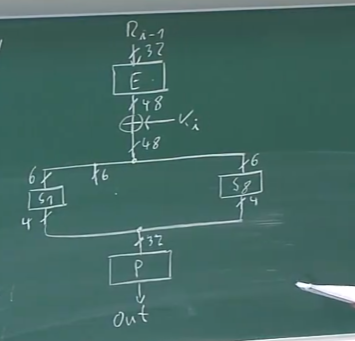 R i-1
32
E
48
K i
48
6 6 6
S1 S8
4 4
32
P
Out